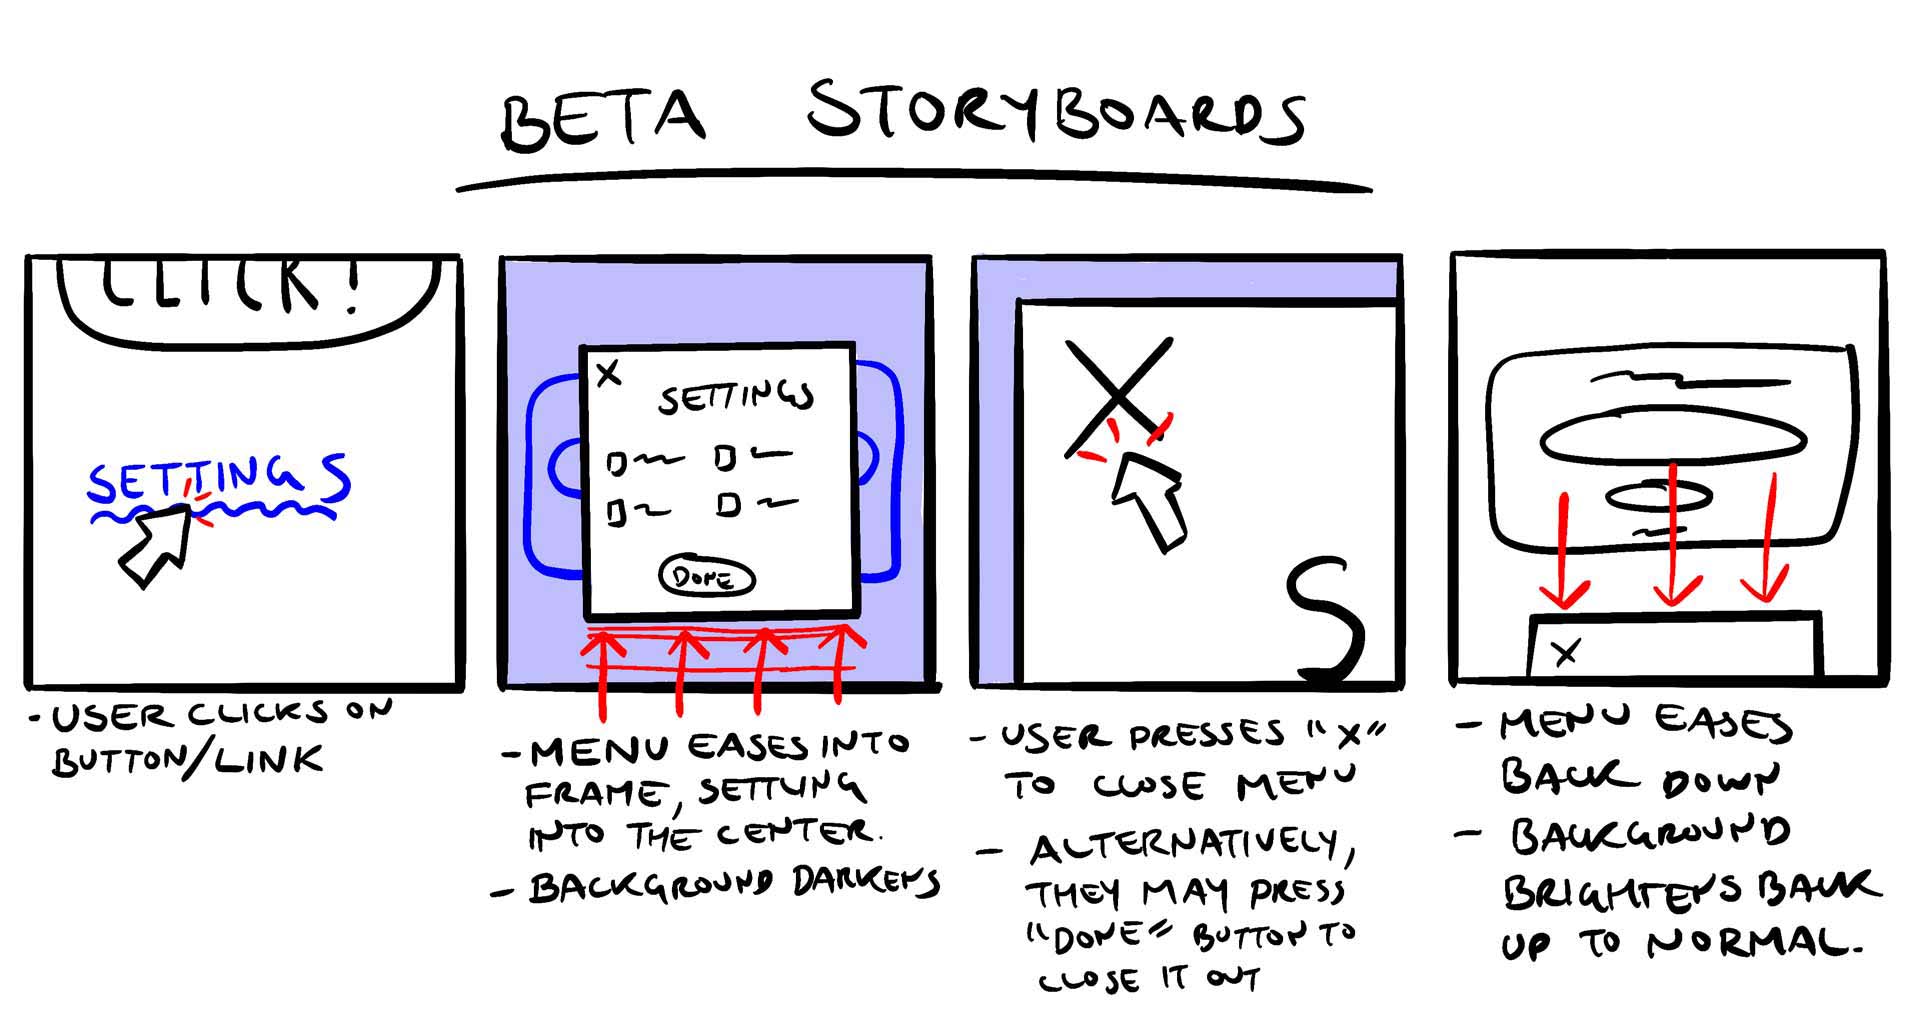 BETA STORYBOARDS
CLICK!
SETTINGS
- USER CLICKS ON
BUTTON/LINK
X
SETTINGS
DONE
- MENU EASES INTO
FRAME, SETTLING
INTO THE CENTER.
- BACKGROUND DARKENS
X
S
- USER PRESSES "X"
TO CLOSE MENU
- ALTERNATIVELY,
THEY MAY PRESS
"DONE" BUTTON TO
CLOSE IT OUT
X
- MENU EASES
BACK DOWN
- BACKGROUND
BRIGHTENS BACK
UP TO NORMAL.